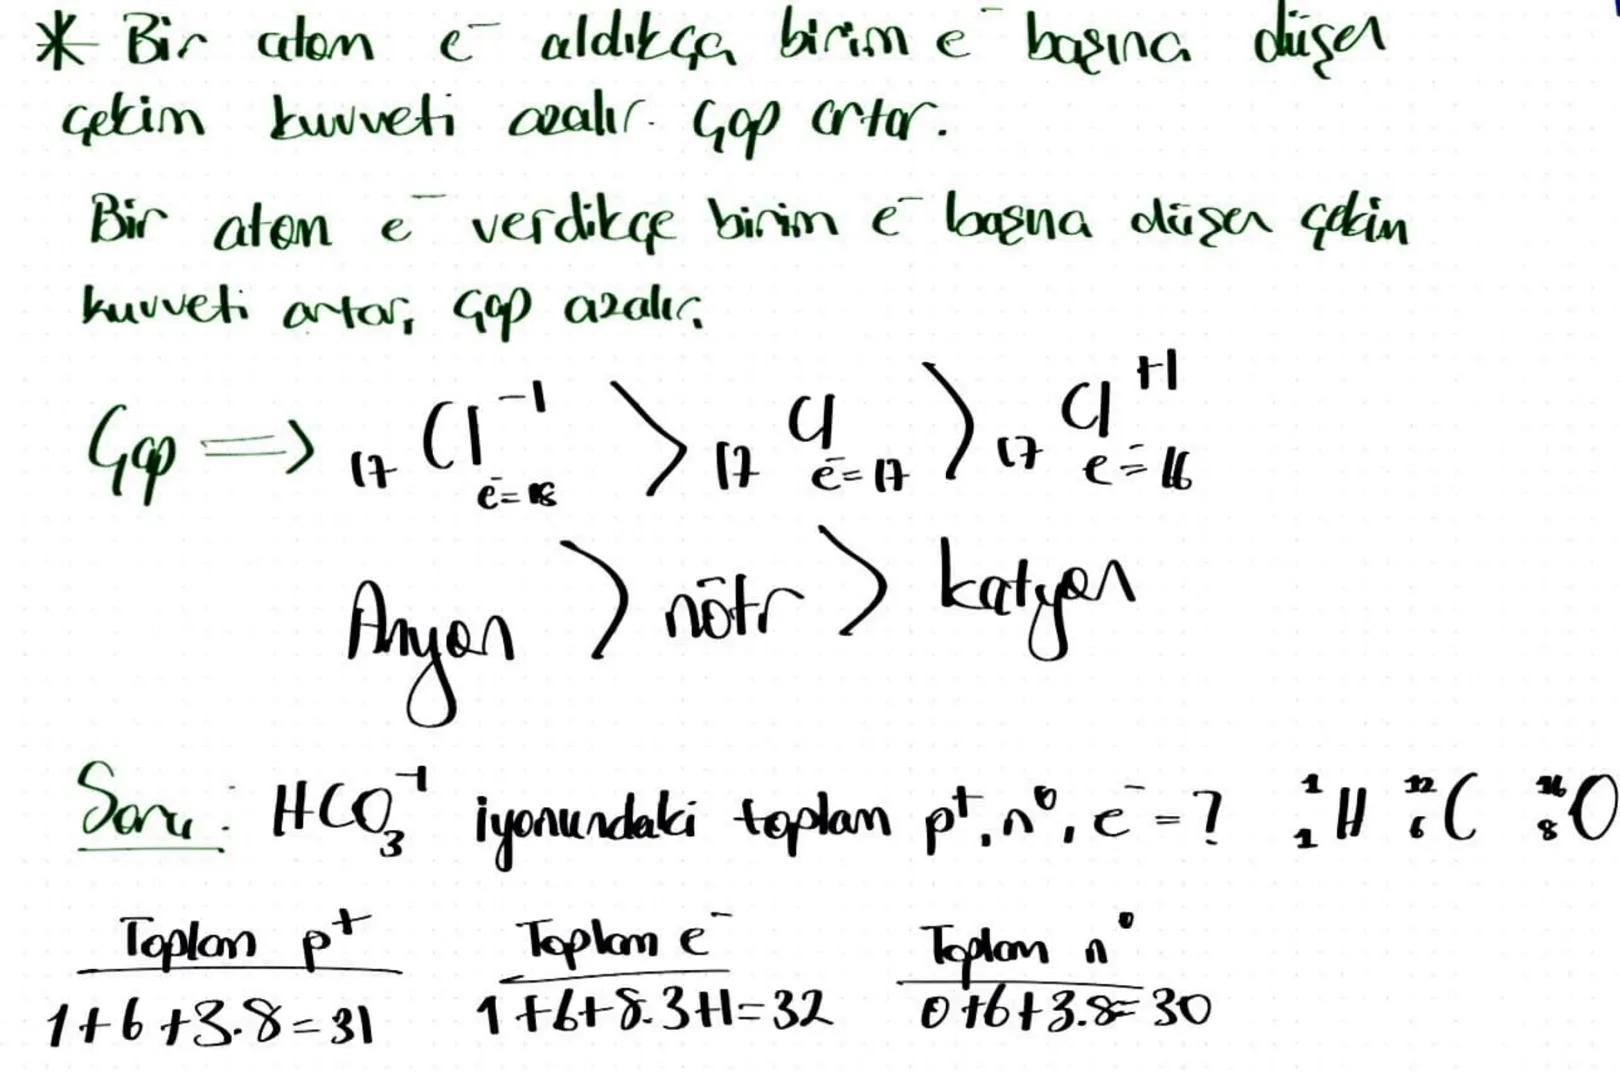 * Bir atom e⁻ aldıkça birim e⁻ başına düşen
çekim kuvveti azalır. Çap artar.
Bir atom e⁻ verdikçe birim e⁻ başına düşen çekim
kuvveti artar, çap azalır.
Çap ⟹ ₁₇Cl⁻¹ e⁻=18 > ₁₇Cl e⁻=17 > ₁₇Cl⁺¹ e⁻=16
Anyon > nötr > katyon
Soru: HCO₃⁻¹ iyonundaki toplam p⁺, n⁰, e⁻ = ? ¹₁H ¹²₆C ¹⁶₈O
Toplam p⁺ Toplam e⁻ Toplam n⁰
1+6+3.8=31 1+6+8.3+1=32 0+6+3.8=30